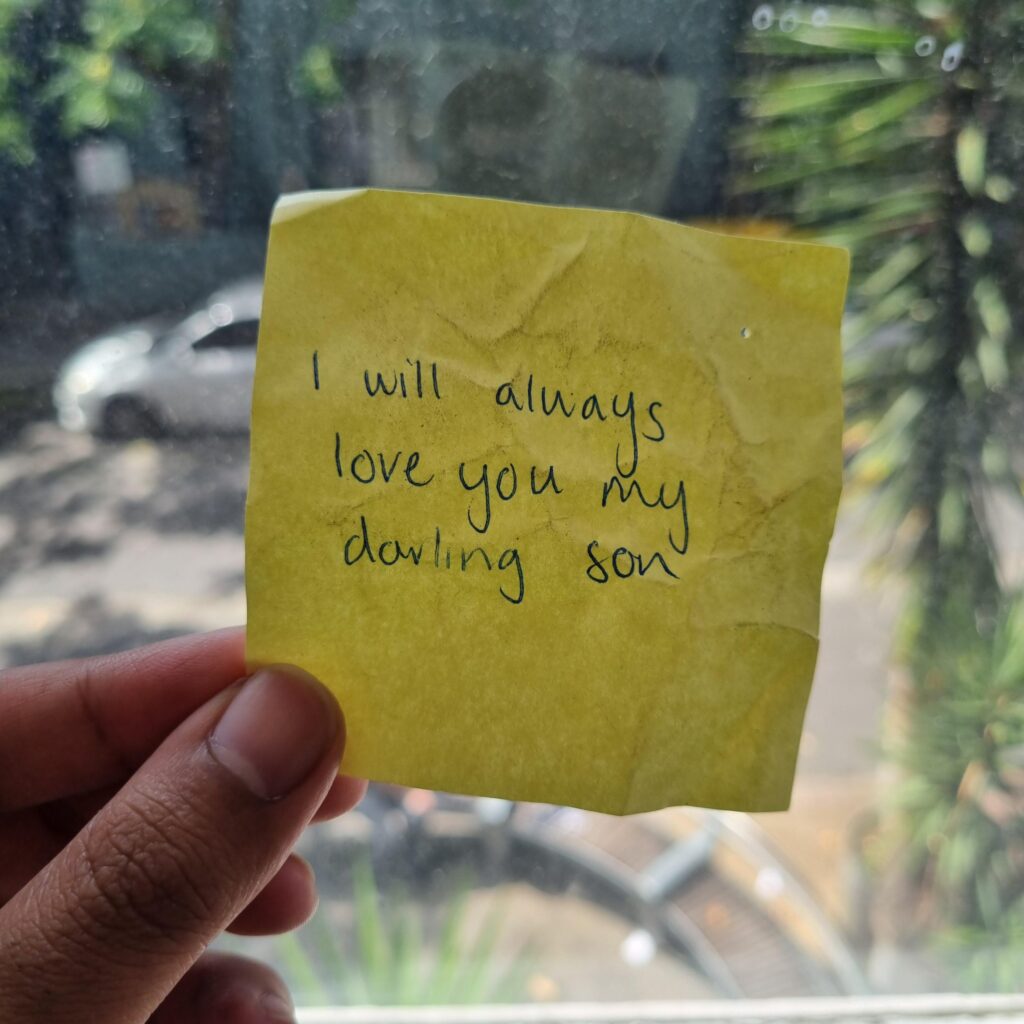 I will always
love you my
darling son